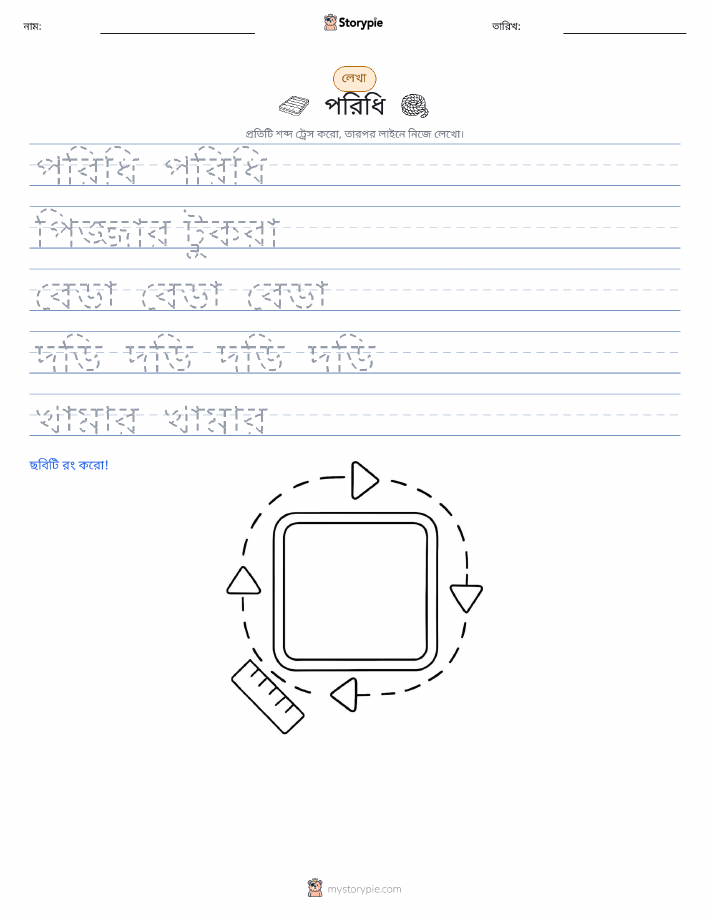 নাম:
Storypie
তারিখ:
লেখা
পরিধি
প্রতিটি শব্দ ট্রেস করো, তারপর লাইনে নিজে লেখো।
পরিধি পরিধি
পিজ্জার টুকরা
বেড়া বেড়া বেড়া
দড়ি দড়ি দড়ি দড়ি
খামার খামার
ছবিটি রং করো!
mystorypie.com